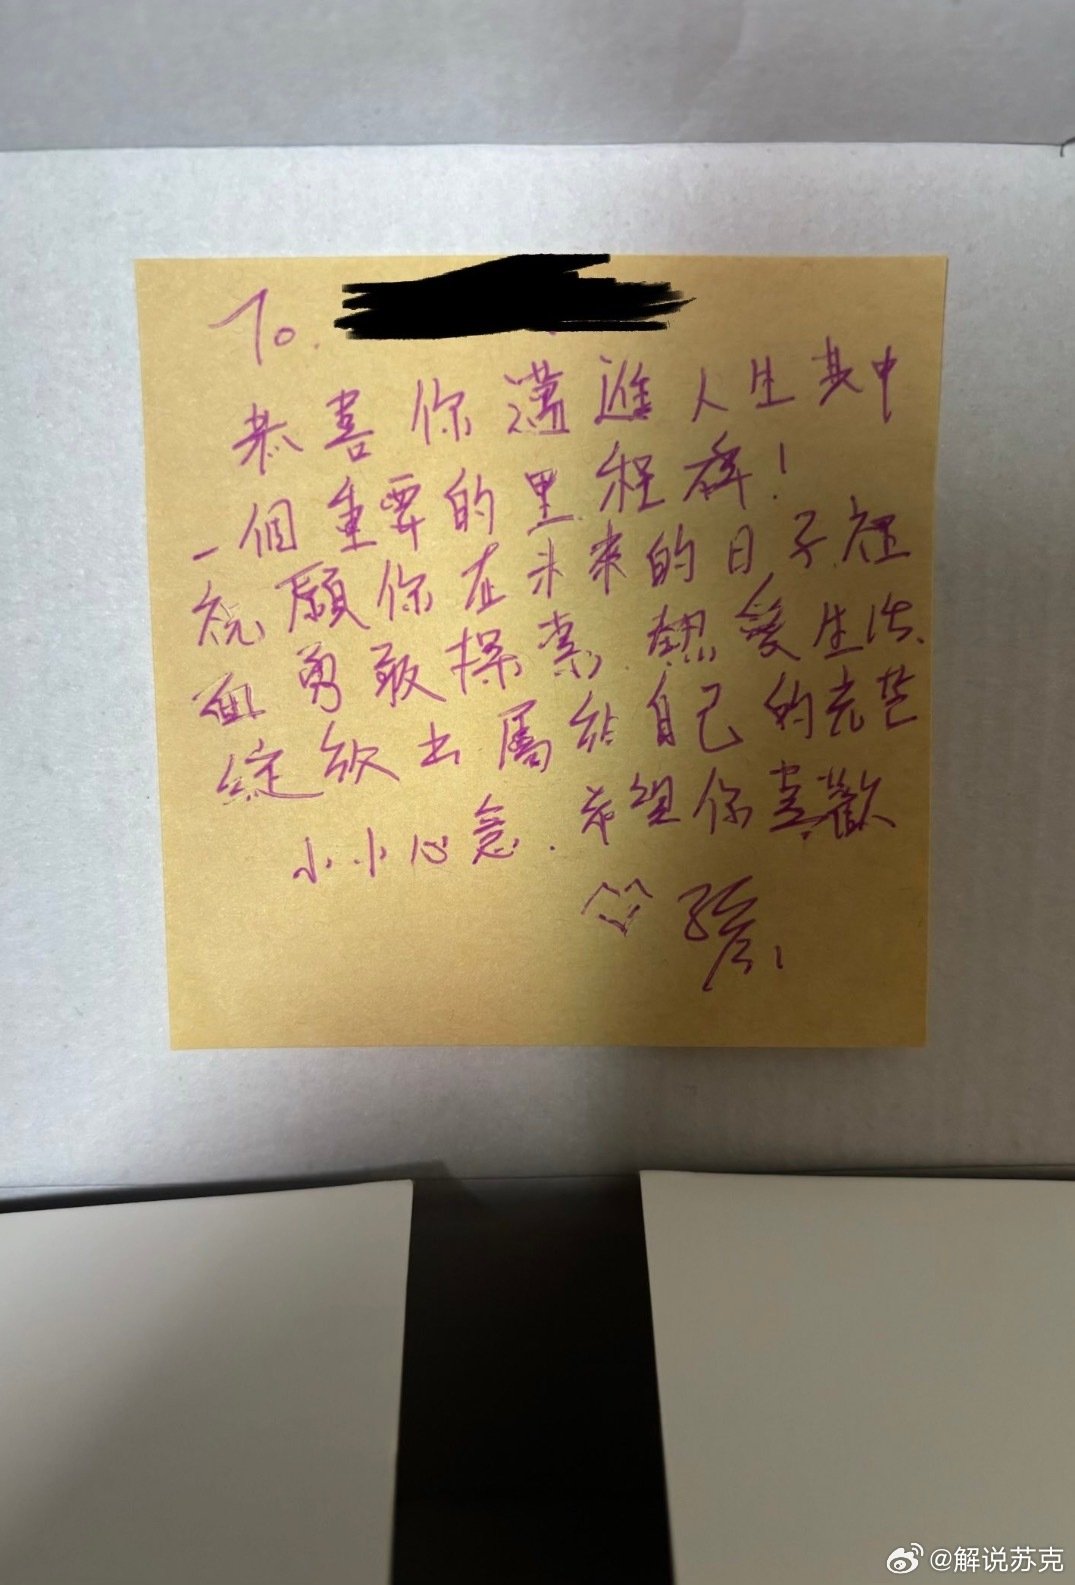 To.
恭喜你邁進人生其中
一個重要的里程碑!
祝願你在未來的日子裡
面勇敢探索.熱愛生活.
綻放出屬於自己的光芒
小小心意.希望你喜歡
@解说苏克